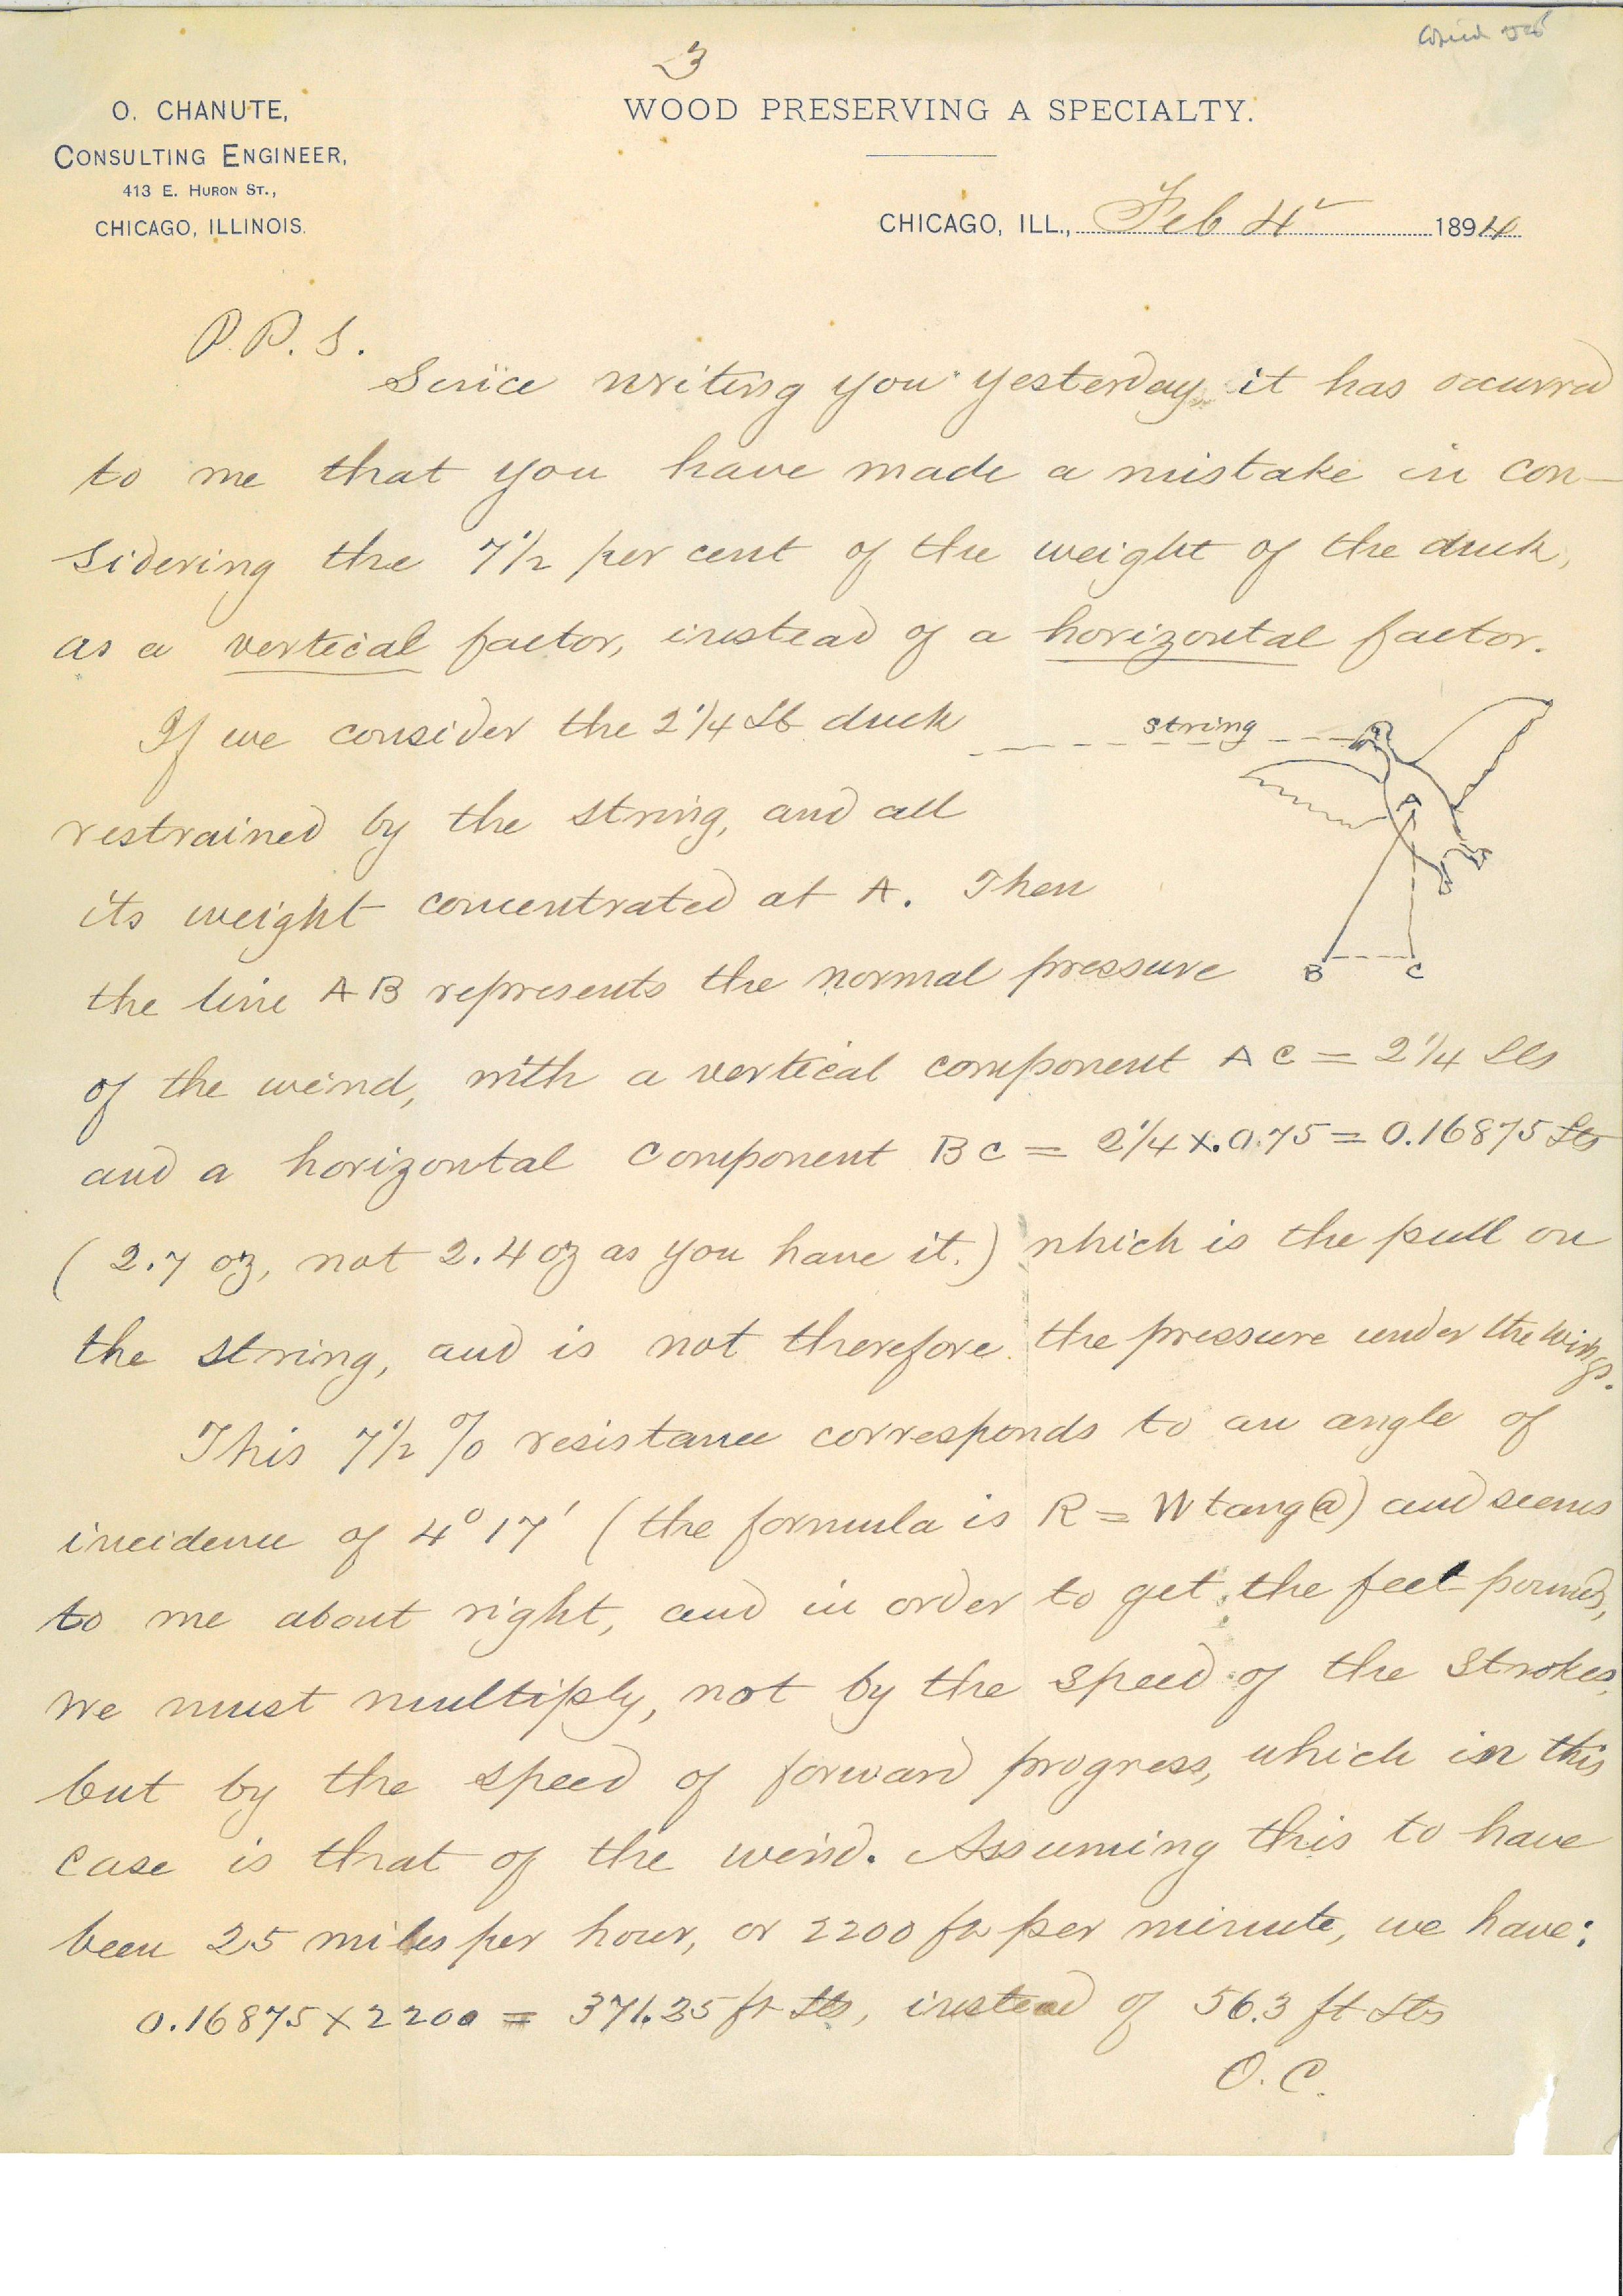 3
O. CHANUTE,
CONSULTING ENGINEER,
413 E. HURON ST.,
CHICAGO, ILLINOIS.
WOOD PRESERVING A SPECIALTY.
CHICAGO, ILL., Feb 4 1894
P.P.S.
Since writing you yesterday it has occurred
to me that you have made a mistake in con-
sidering the 7 1/2 per cent of the weight of the duck,
as a vertical factor, instead of a horizontal factor.
If we consider the 2 1/4 Lb duck
string
restrained by the string, and all
A
its weight concentrated at A. Then
the line AB represents the normal pressure
B C
of the wind, with a vertical component AC = 2 1/4 Lbs
and a horizontal component BC = 2 1/4 x .0.75 = 0.16875 Lbs
(2.7 oz, not 2.4 oz as you have it.) which is the pull on
the string, and is not therefore the pressure under the wings.
This 7 1/2 % resistance corresponds to an angle of
incidence of 4° 17' (the formula is R = W tang @) and seems
to me about right, and in order to get the feet pounds,
we must multiply, not by the speed of the strokes,
but by the speed of forward progress, which in this
case is that of the wind. Assuming this to have
been 25 miles per hour, or 2200 ft per minute, we have:
0.16875 x 2200 = 371.25 ft Lbs, instead of 56.3 ft Lbs
O.C.